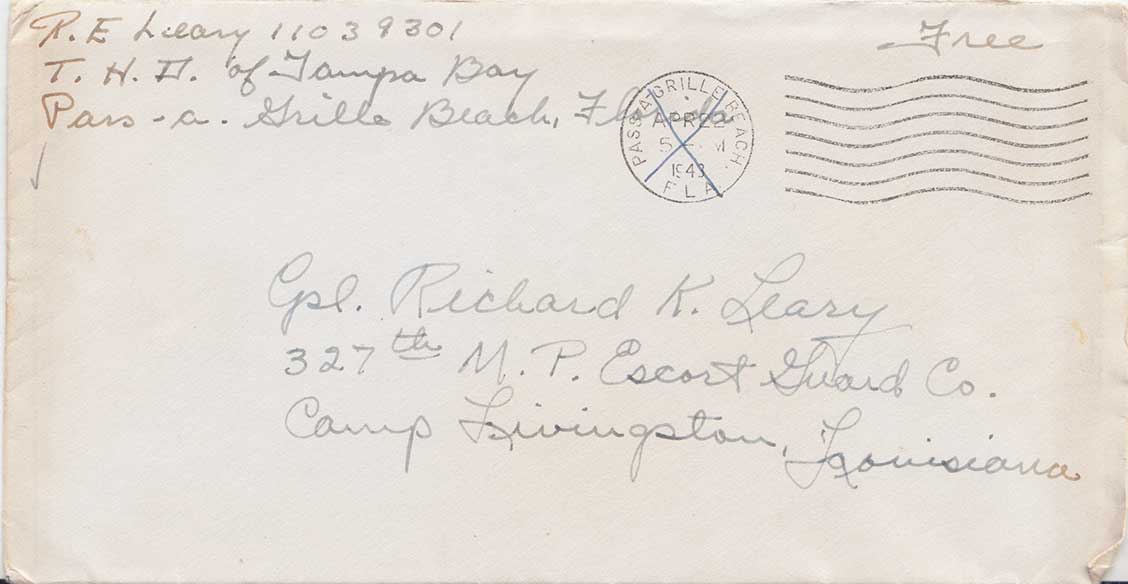 R. E Leary 11039301
T. H. D. of Tampa Bay
Pass-a-Grille Beach, Florida
Free
PASS-A-GRILLE BEACH.
APR 22
5 M
1943
FLA
Cpl. Richard K. Leary
327th M. P. Escort Guard Co.
Camp Livingston, Louisiana